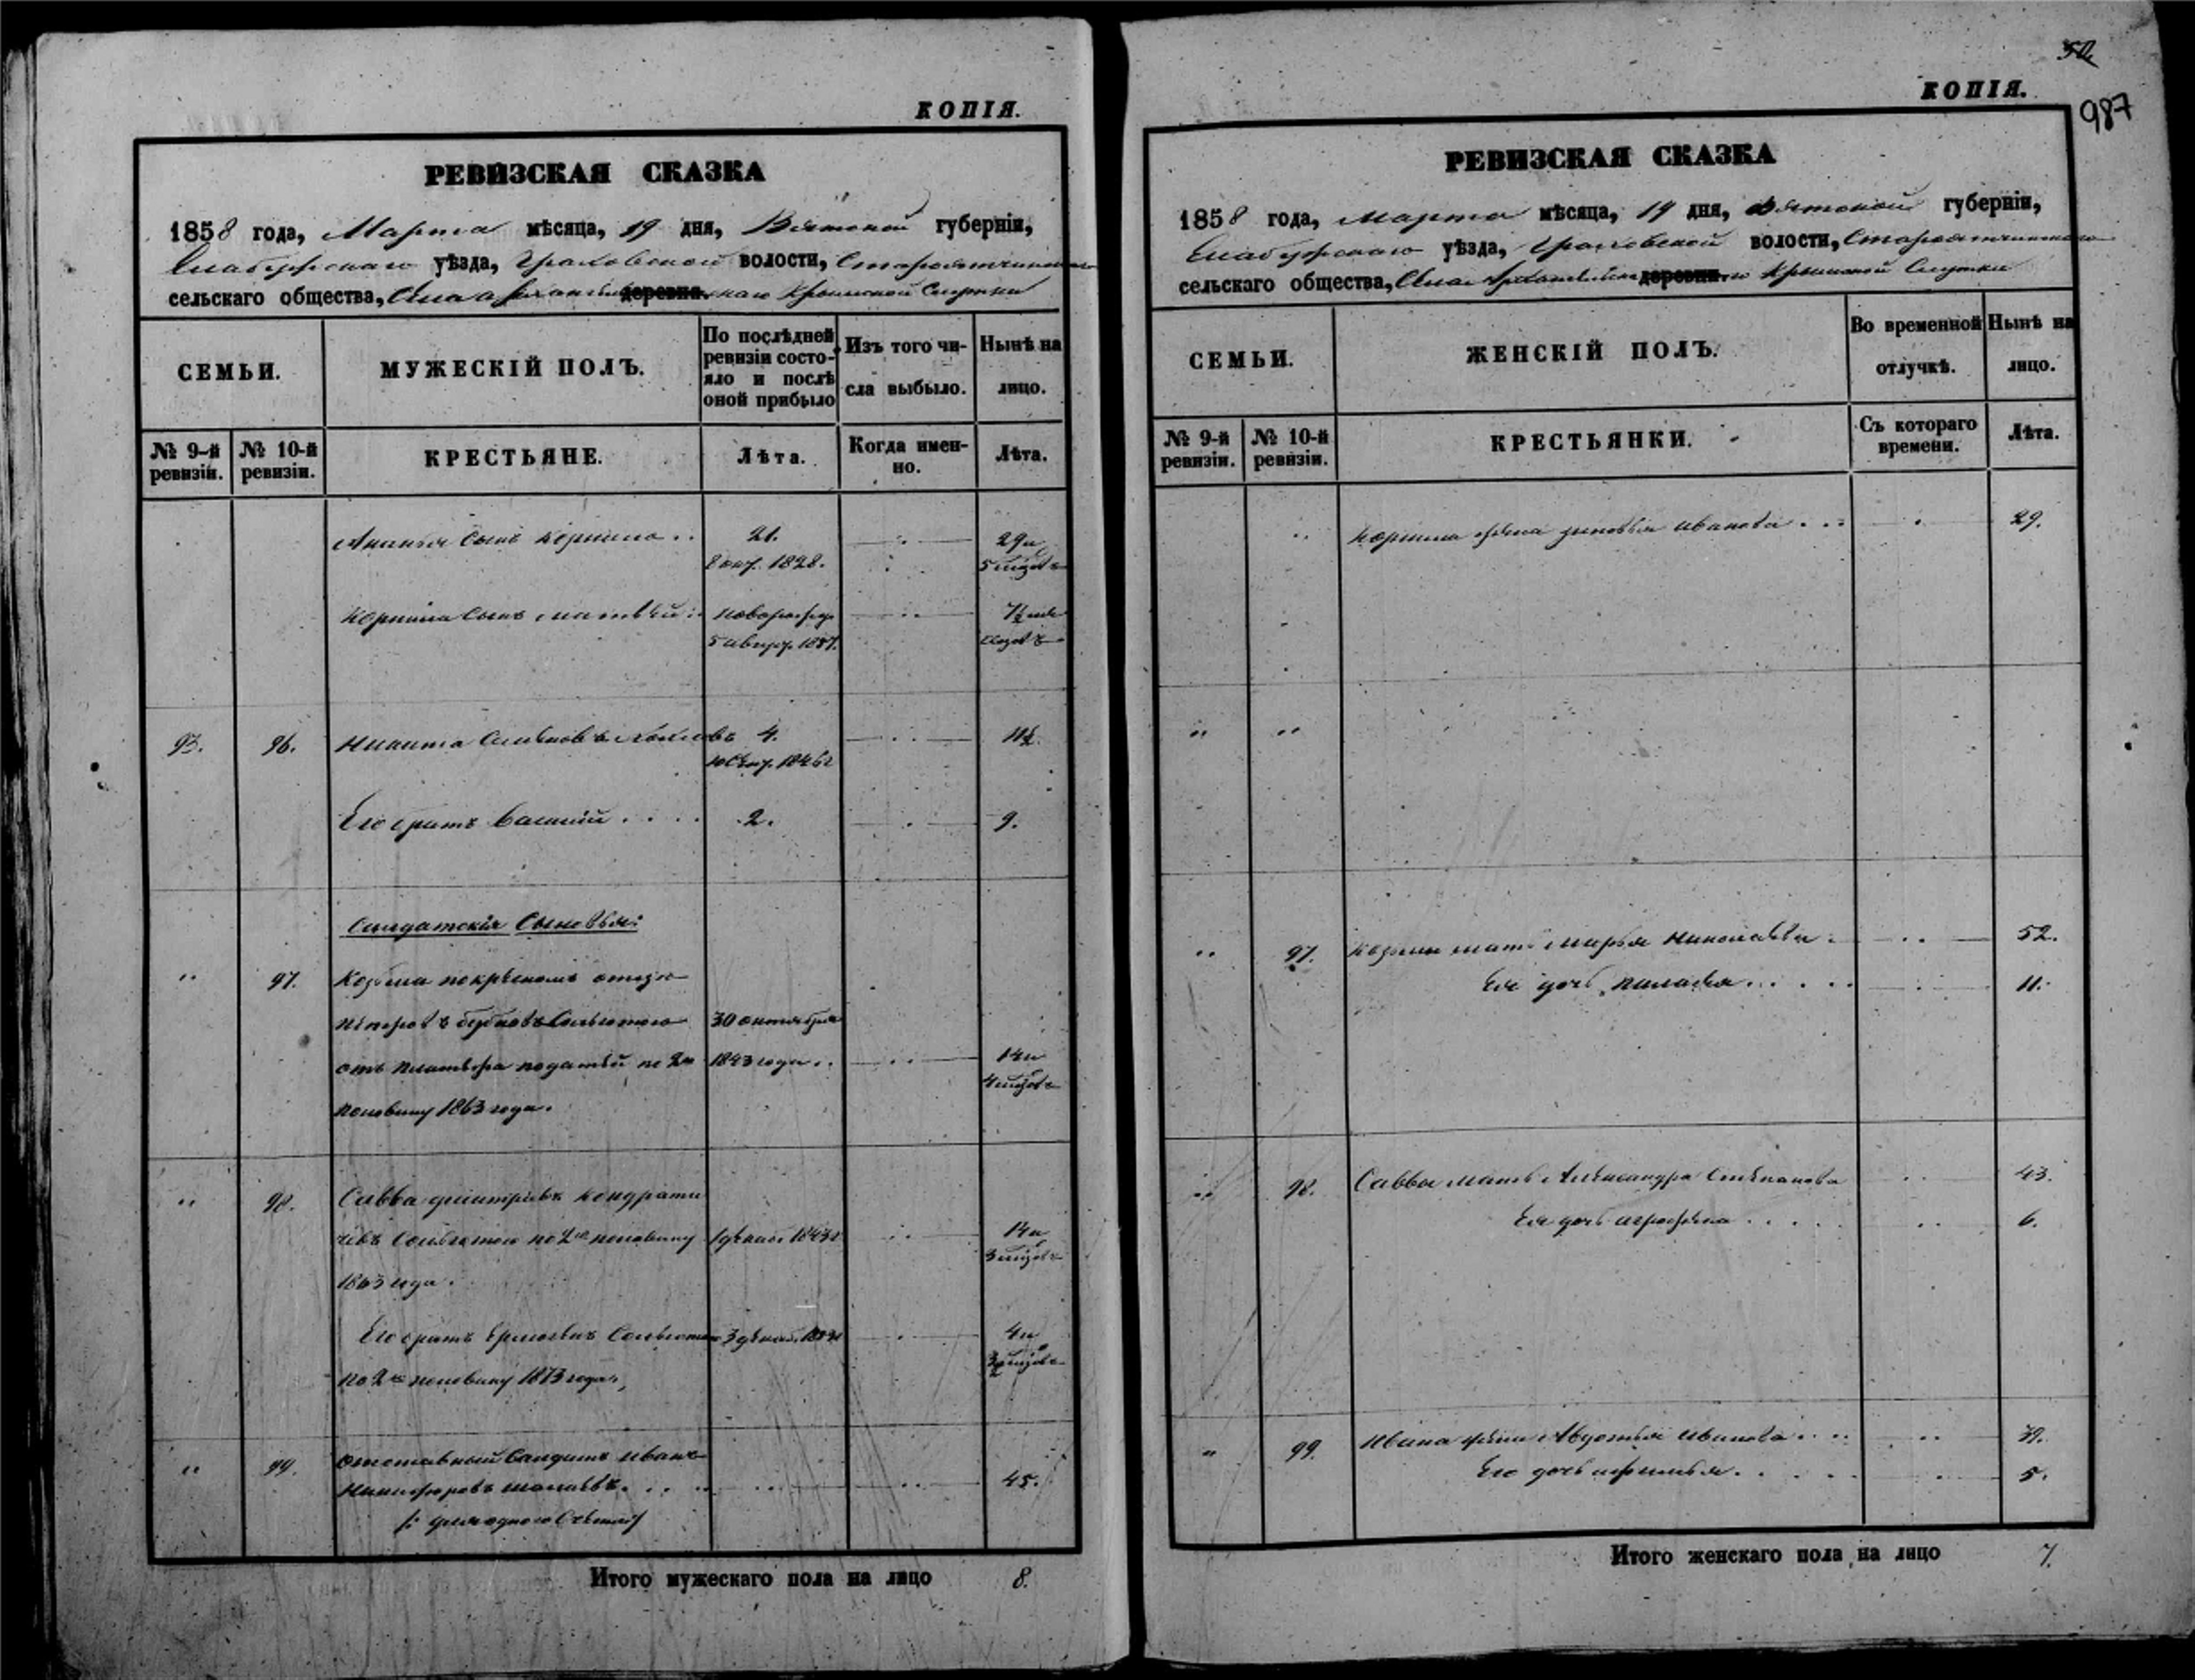 КОПІЯ.
РЕВИЗСКАЯ СКАЗКА
1858 года, Марта мѣсяца, 19 дня, Вятской губерніи,
Елабужскаго уѣзда, Граховской волости,
сельскаго общества, Села деревни Крымской Слудки
СЕМЬИ.
МУЖЕСКІЙ ПОЛЪ.
По послѣдней ревизіи состояло и послѣ оной прибыло
Изъ того числа выбыло.
Нынѣ на лицо.
№ 9-й ревизіи.
№ 10-й ревизіи.
КРЕСТЬЯНЕ.
Лѣта.
Когда именно.
Лѣта.
Ананья сынъ Корнила .. 21. 29 и
8 1828. 5 мѣсяцовъ
Корнила сынъ Матвѣй новорожд. 7½ мѣ
5 1857. сяцовъ
93. 96. Никита 4. 11½.
10 1846
Его братъ Василій . . . . 2. 9.
Солдатскія Сыновья:
97. Козьма по крѣсномъ отцѣ
30 октября
отъ платежа податей по 2ю 1843 года .. 14 и
4 мѣсяцовъ
половину 1863 года.
98. Савва Дмитріевъ Кондрати
евъ по 2ю половину 1 декаб. 1843 14 и
3 мѣсяцовъ
1863 года.
Его братъ 3 декаб. 4 и
3½ мѣсяцовъ
по 2ю половину 1873 года,
99. отставный Солдатъ Иванъ
Никифоровъ 45.
/: для одного Счета /
Итого мужескаго пола на лицо 8.
50
КОПІЯ.
987
РЕВИЗСКАЯ СКАЗКА
1858 года, Марта мѣсяца, 19 дня, Вятской губерніи,
Елабужскаго уѣзда, Граховской волости,
сельскаго общества, Села деревни Крымской Слудки
СЕМЬИ.
ЖЕНСКІЙ ПОЛЪ.
Во временной отлучкѣ.
Нынѣ на лицо.
№ 9-й ревизіи.
№ 10-й ревизіи.
КРЕСТЬЯНКИ.
Съ котораго времени.
Лѣта.
Корнила жена Зиновья Иванова . . . 29.
97. Козьмы мать Марья Николаева 52.
Ея дочь Палагея . . . . . 11.
98. Саввы мать Александра Степанова 43.
Ея дочь Аграфена . . . . . 6.
99. Ивана жена Авдотья Иванова . . . 39.
Его дочь Афимья . . . . . 5.
Итого женскаго пола на лицо 7.